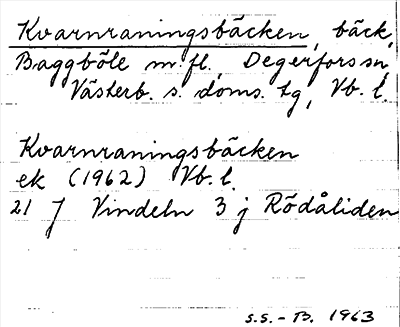 Kvarnraningsbäcken, bäck,
Baggböle m.fl., Degerfors sn,
Västerb. s. doms. tg, Vb. l.
Kvarnraningsbäcken
ek (1962) Vb. l.
21 J Vindeln 3 j Rödåliden
S.S. - B. 1963